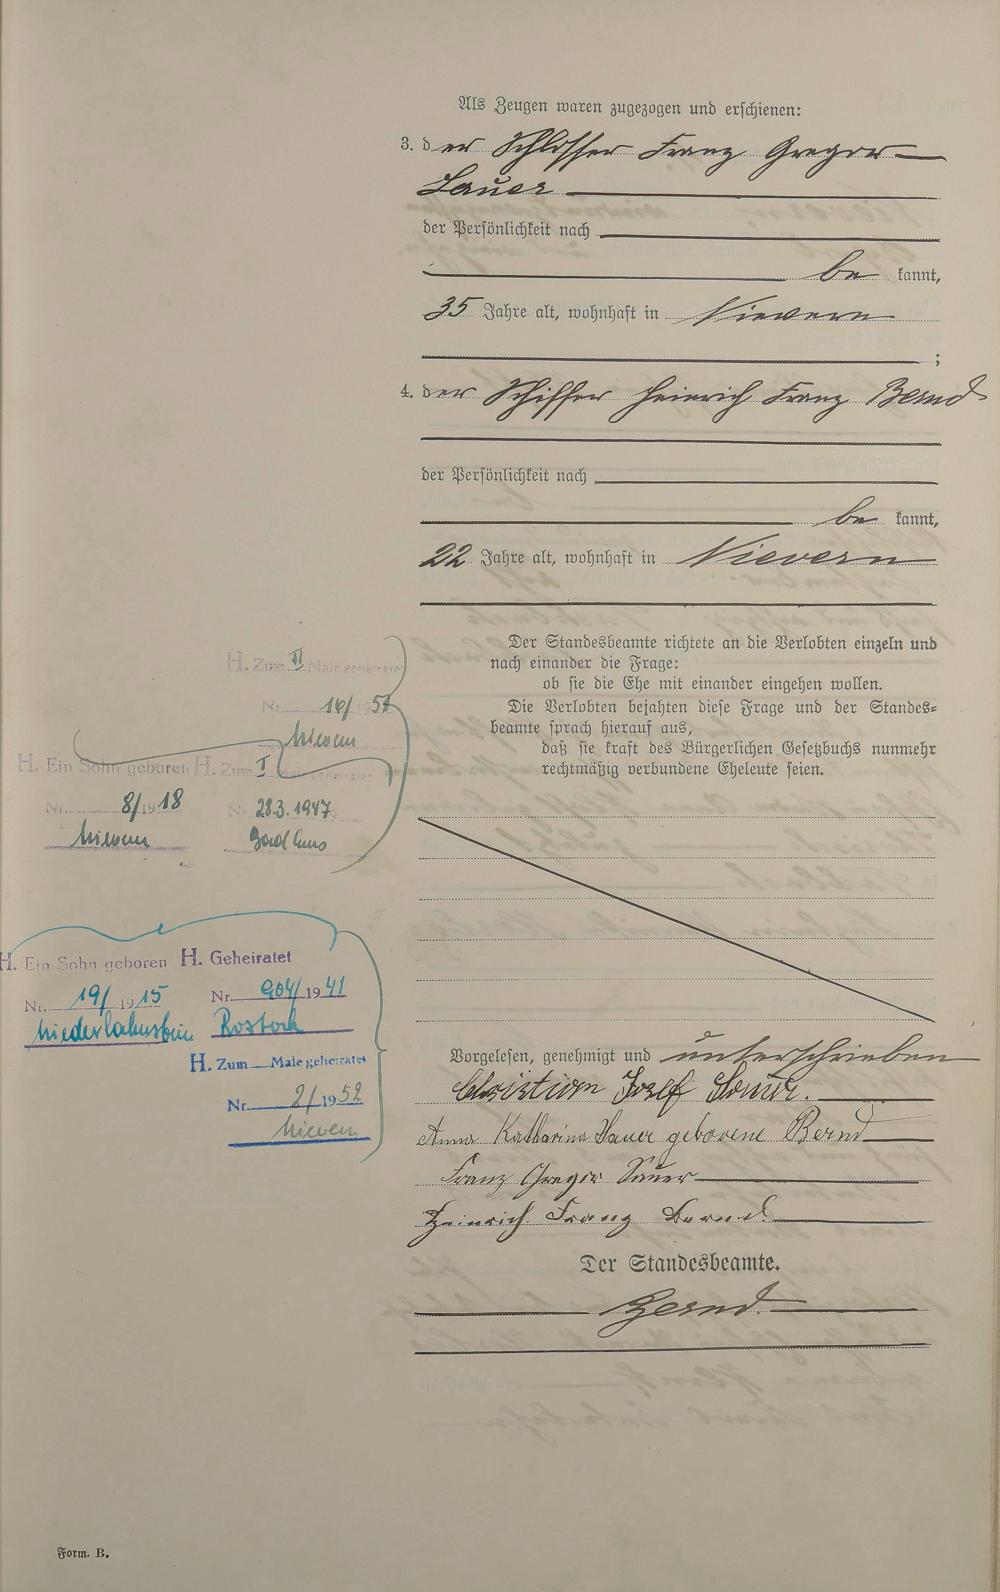 Als Zeugen waren zugezogen und erschienen:
3. der Schlosser Franz Gregor
Sauer
der Persönlichkeit nach
be kannt,
35 Jahre alt, wohnhaft in Nievern
;
4. der Schiffer Heinrich Franz Bernd
der Persönlichkeit nach
be kannt,
22 Jahre alt, wohnhaft in Nievern
Der Standesbeamte richtete an die Verlobten einzeln und
nach einander die Frage:
ob sie die Ehe mit einander eingehen wollen.
Die Verlobten bejahten diese Frage und der Standes=
beamte sprach hierauf aus,
daß sie kraft des Bürgerlichen Gesetzbuchs nunmehr
rechtmäßig verbundene Eheleute seien.
Vorgelesen, genehmigt und unterschrieben
Christian Josef Sauer.
Anna Katharina Sauer geborene Bernd
Franz Gregor Sauer
Heinrich Franz Bernd.
Der Standesbeamte.
Bernd.
H. Zum II Male geheiratet
Nr. 16/195
Nievern
H. Ein Sohn geboren
Nr. 8/1918
Nievern
H. Zum I Male geheiratet
Nr. 28.3.1947
Bad Ems
H. Ein Sohn geboren
Nr. 19/1915
Niederlahnstein
H. Geheiratet
Nr. 904/1941
Rostock
H. Zum Male geheiratet
Nr. 2/1952
Nievern
Form. B.